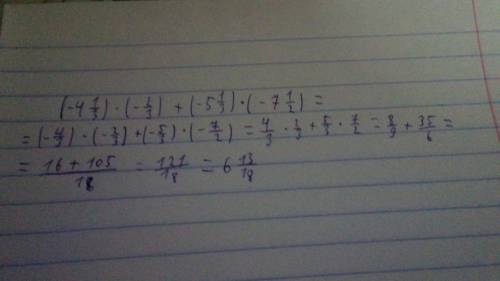 (-4 1/3) · (-2/3) + (-5 1/3) · (-7 1/2) =
= (-4/3) · (-2/3) + (-5/3) · (-7/2) = 4/3 · 2/3 + 5/3 · 7/2 = 8/9 + 35/6 =
= 16 + 105/18 = 121/18 = 6 13/18